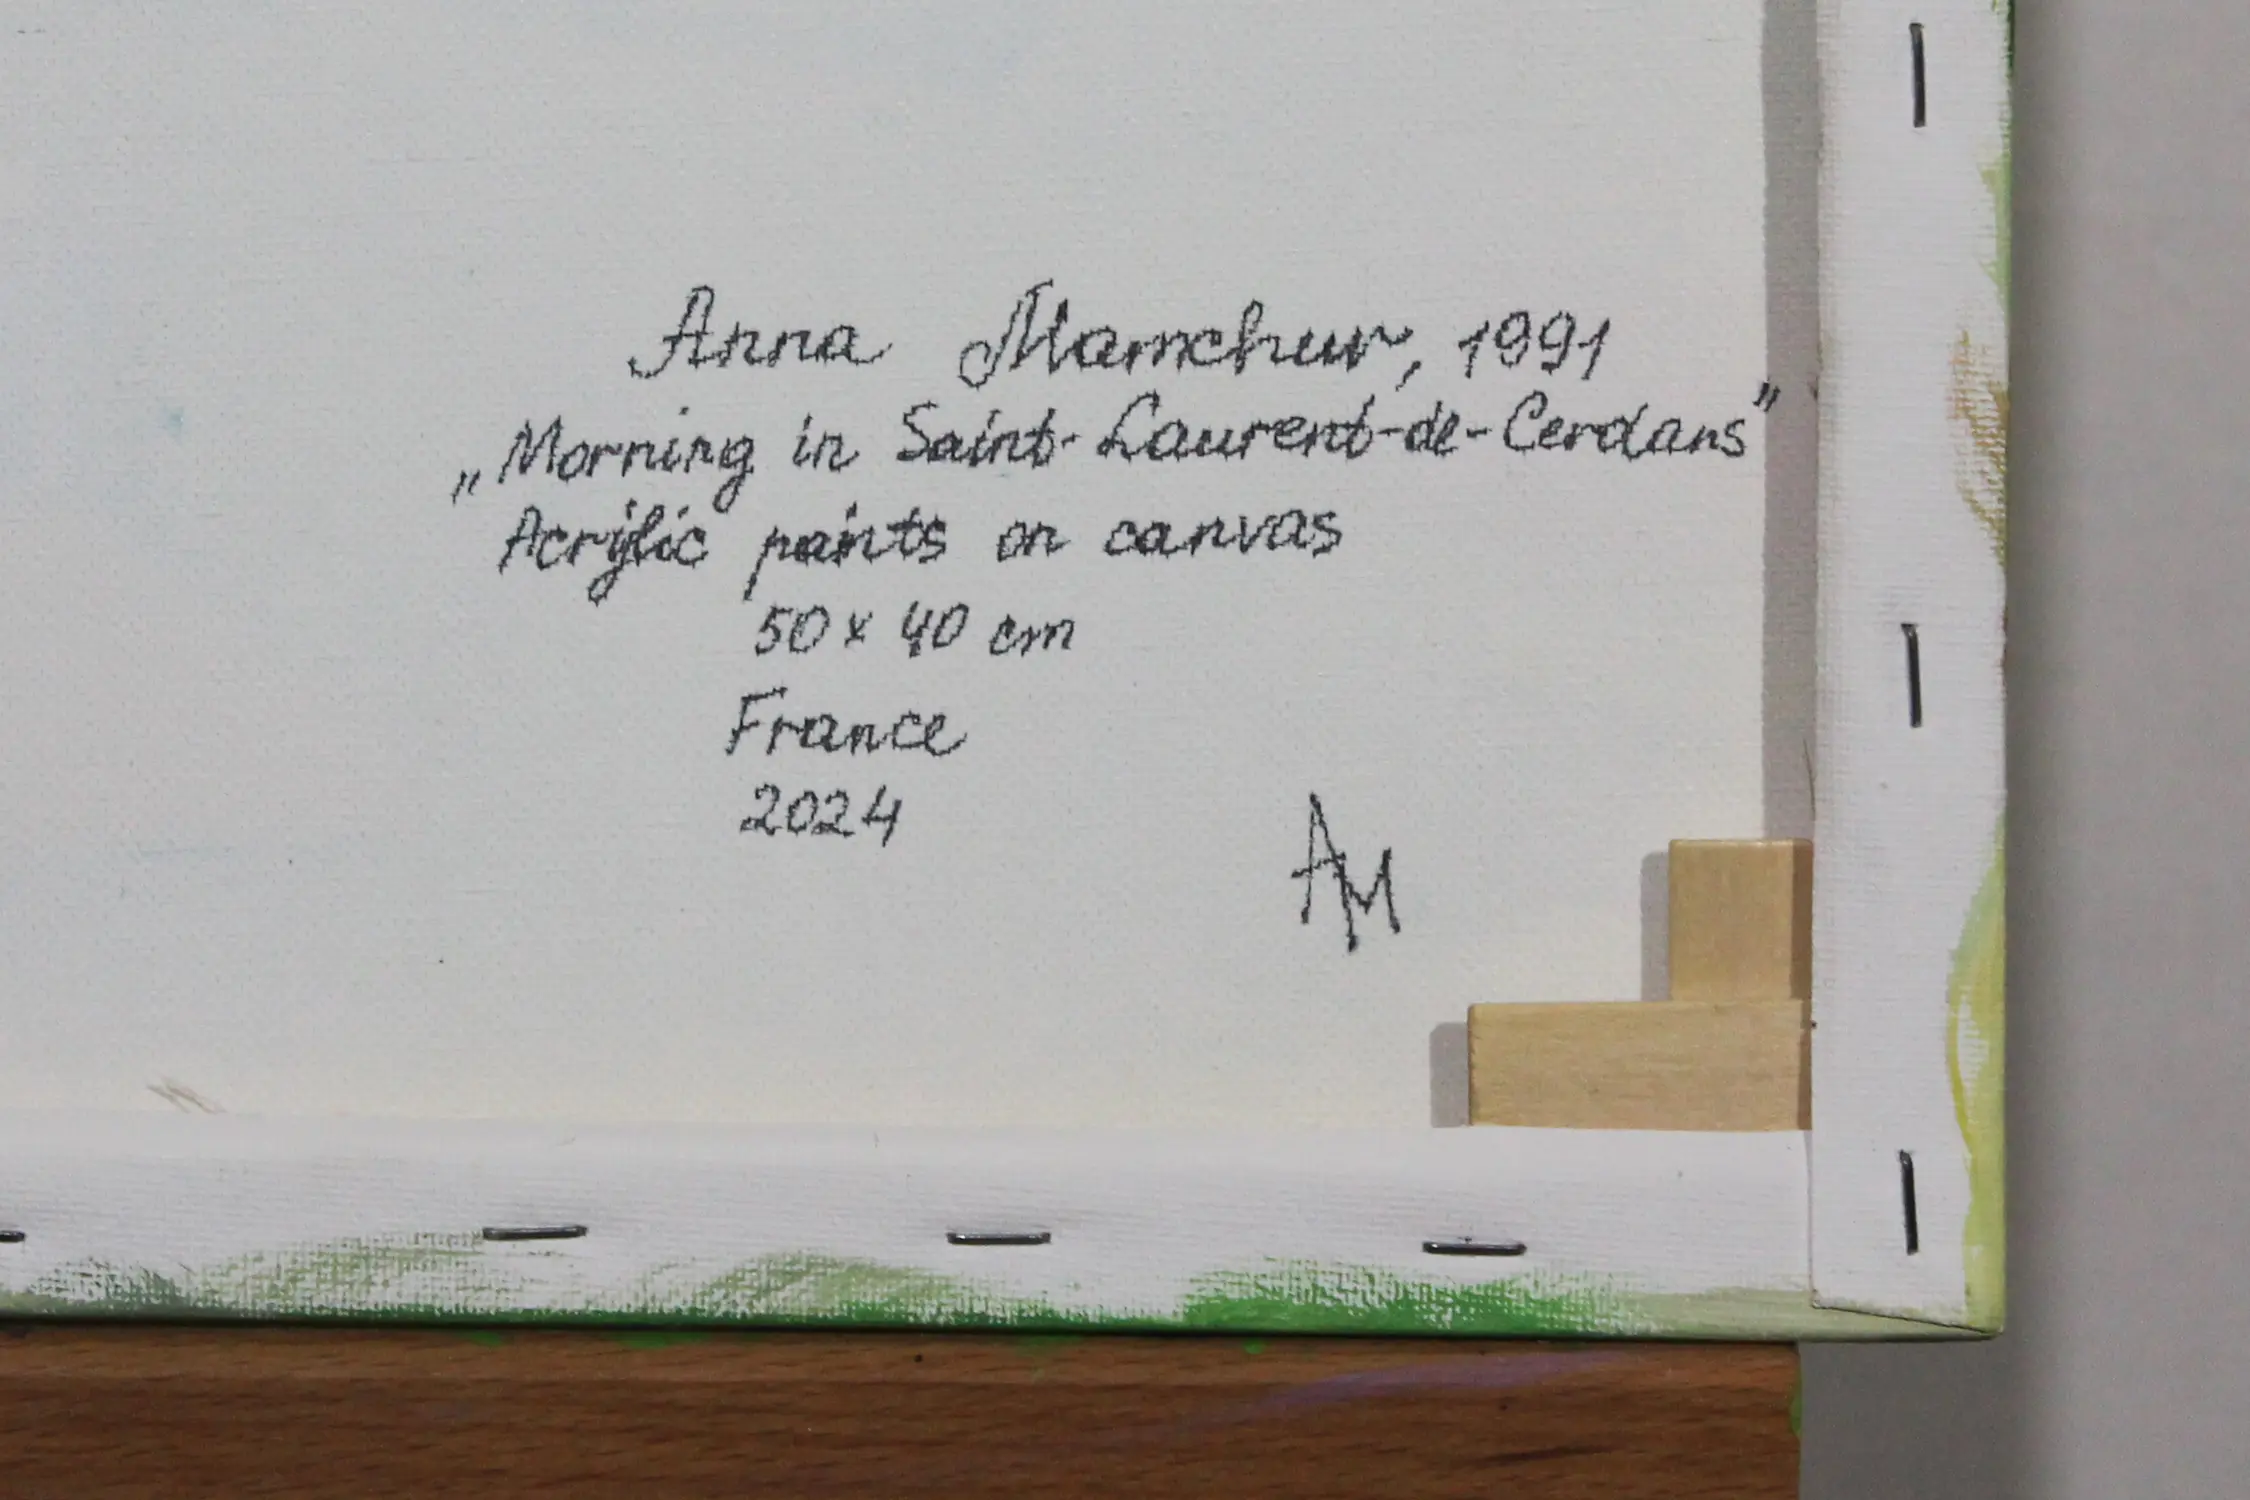 Anna Mamchur, 1991
„Morning in Saint-Laurent-de-Cerdans”
Acrylic paints on canvas
50 x 40 cm
France
2024
AM